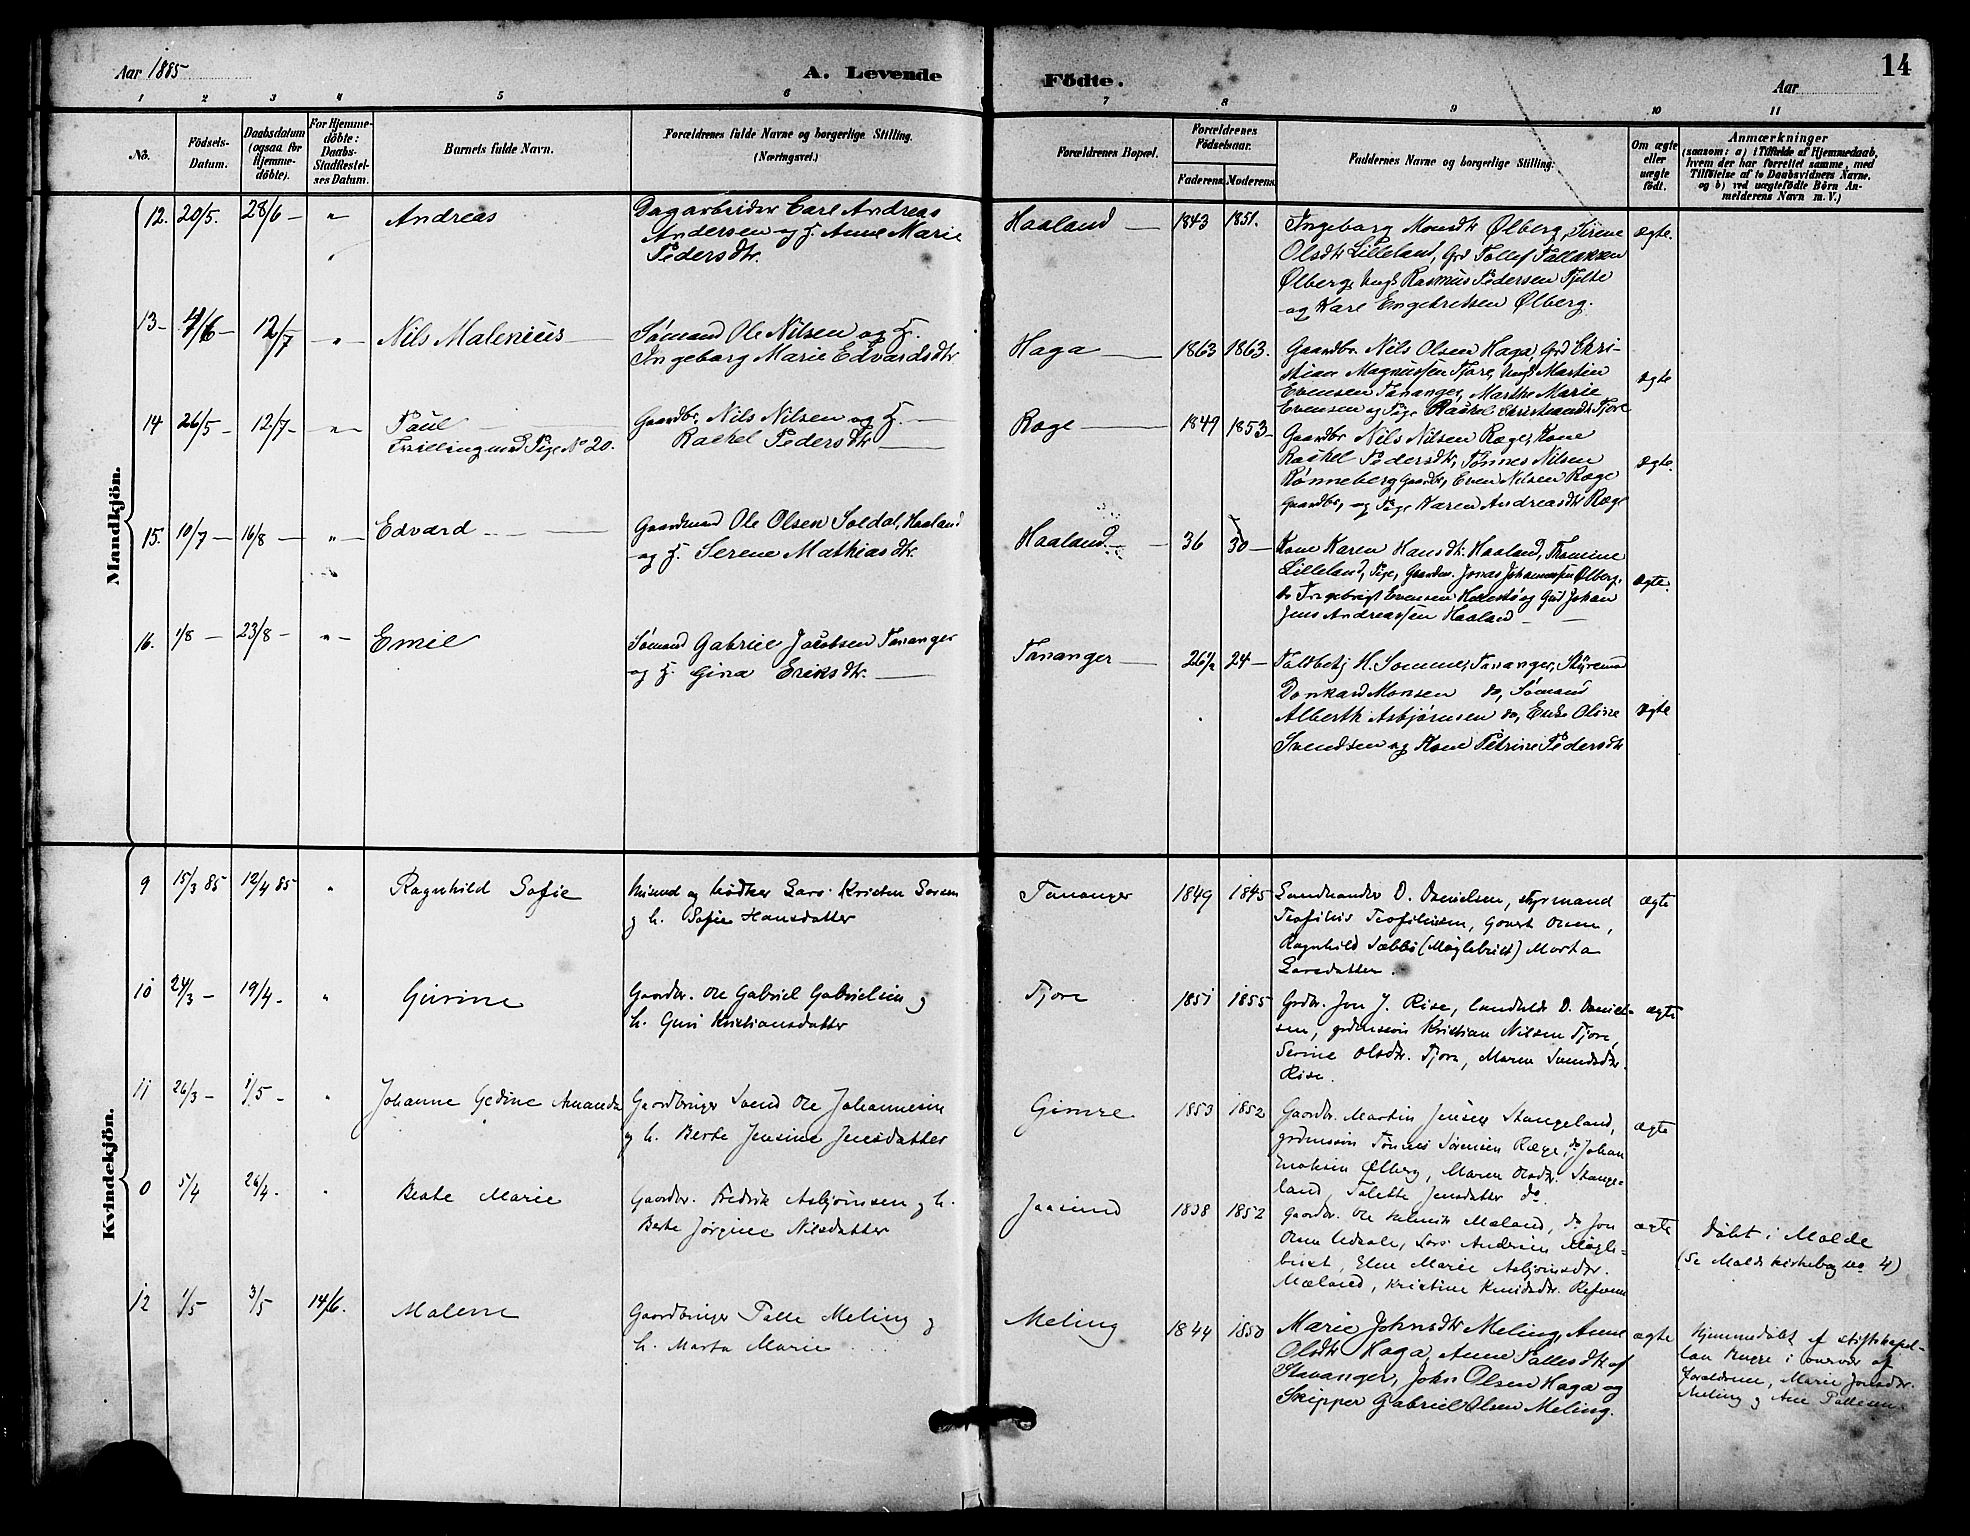 Aar 1885
A. Levende
Födte.
Aar
14
1 2 3 4 5 6 7 8 9 10 11
No.
Födsels-
Datum.
Daabsdatum
(ogsaa for
Hjemme-
döbte).
For Hjemme-
döbte:
Daabs-
Stadfæstel-
ses Datum.
Barnets fulde Navn.
Forældrenes fulde Navne og borgerlige Stilling.
(Næringsvei.)
Forældrenes Bopæl.
Forældrenes
Födselsaar.
Faderens. Moderens.
Faddernes Navne og borgerlige Stilling.
Om ægte
eller
uægte
födt.
Anmærkninger
(saasom: a) i Tilfælde af Hjemmedaab,
hvem der har forrettet samme, med
Tilföielse af to Daabsvidners Navne,
og b) ved uægtefödte Börn An-
melderens Navn m. V.)
Mandkjön.
12. 20/5. 28/6 - " Andreas
Dagarbeider Carl Andreas
Andersen og H. Anne Marie
Pedersdtr.
Haaland 1843 1851.
Ingeborg Monsdtr Ølberg, Sirene
Olsdtr Lilleland, Grd Tollef Tollaksen
Ølberg, Ungk Rasmus Pedersen Tjelte
og Kare Engebretsen Ølberg.
ægte.
13- 4/6- 12/7 - " - Nils Malenius
Sømand Ole Nilsen og H.
Ingeborg Marie Edvardsdtr
Haga 1863 1863.
Gaardbr Nils Olsen Haga, Grd Chri-
stian Magnussen Tjore, Ungk Martin
Evensen Tananger, Marthe Marie
Evensen og Pige Rachel Christiansdtr Tjore
ægte
14 26/5 - 12/7 - " - Paul
Tvilling med Pige No 20.
Gaardbr. Nils Nilsen og H.
Rachel Pedersdtr
Ræge 1849 1853-
Gaardbr Nils Nilsen Ræge, Kone
Rachel Pedersdtr, Tønnes Nilsen
Rønneberg Gaardbr, Even Nilsen Ræge
Gaardbr, og Pige Karen Andreasdtr Ræge
ægte.
15. 10/7 - 16/8 - " - Edvard
Gaardmand Ole Olsen Soldal, Haaland
og H. Serene Mathiasdtr
Haaland - 36 30 -
Kone Karen Hansdtr. Haaland, Tromine
Lilleland, Pige, Gaardm. Jonas Johannessen Ølberg,
do Ingebrigt Evensen og Grd Johan
Jens Andreassen Haaland
ægte.
16. 1/8 - 23/8 - " - Emil
Sømand Gabriel Jacobsen Tananger
og H. Gina Eriksdtr.
Tananger - 26½ 24 -
Toldbetj H. Sommer, Tananger, Styrmand
Dankard Monsen do, Sømand
Alberth Asbjørnsen do, Enke Oline
Svendsen og Kone Petrine Pedersdtr
ægte
Kvindekjön.
9 15/3 85 12/4 85 " Ragnhild Sofie
og bødker Lars Kristen Larsen
og h. Sofie Hansdatter
Tananger 1849 1845
Landhandler D. Danielsen, styrmand
Teofilus Teofilusen, Govert Onen,
Ragnhild Sæbbø (Møglebust) Marta
Larsdatter.
ægte
10 24/3 - 19/4 - " Gurine
Gaardbr. Ole Gabriel Gabrielsen og
h. Guri Kristiansdatter
Tjore 1851 1855
Grdbr. Jon J. Rise, landhdlr D. Daniel-
sen, grdmssøn Kristian Nilsen Tjore,
Serine Olsdtr. Tjore, Maren Svendsdtr.
Rise.
ægte
11 26/3 - 1/5 - " Johanne Gedine Amanda
Gaardbruger Svend Ole Johannesen
og h. Berte Jensine Jensdatter
Gimre 1853 1852
Gaardbr. Martin Jensen Stangeland,
grdmssøn Tønnes Sørensen Ræge, do Johan
Enoksen Ølberg, Maren Olsdtr. Stange-
land, Tolette Jensdatter do.
ægte
0 5/4 26/4. " Beate Marie
Gaardbr. Fredrik Asbjørnsen og h.
Berte Jørgine Nilsdatter
Jaasund 1838 1852
Gaardbr. Ole Helmik Mæland, do Jon
Onen , Lars Andersen Møgle-
bust, Elen Marie Asbjørnsdtr.
Mæland, Kristine Knudsdtr. Refsnes
ægte
Døbt i Molde
(Se Molde kirkebog no 4)
12 1/5 3/5 14/6. Malene
Gaardbruger Talle Meling og
h. Marta Marie
Meling 1844 1850
Marie Johnsdtr Meling, Anne
Olsdtr Haga, Anne Tallesdtr af
Stavanger, John Olsen Haga og
Skipper Gabriel Olsen Meling.
ægte
Hjemmedøbt af stiftskapel-
lan i overvær af
forældrene, Marie Jonsdtr.
Meling og Ane